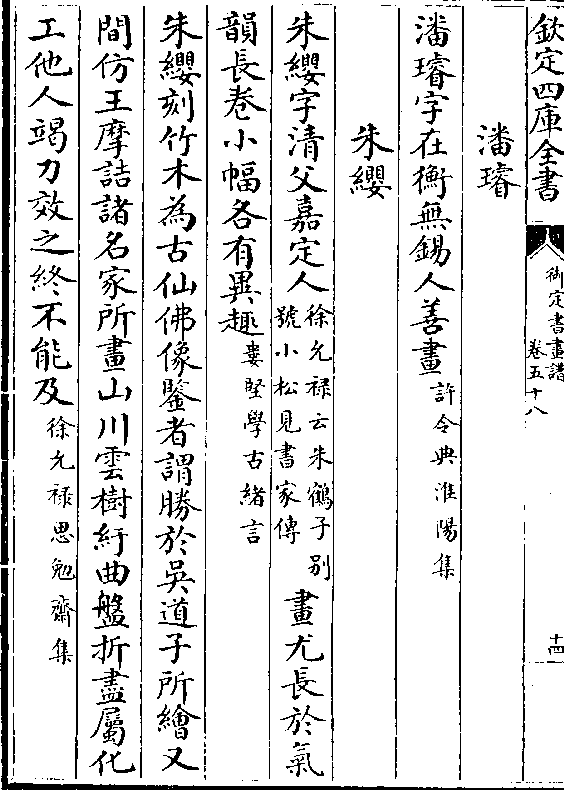 欽定四庫全書
御定書畫譜
卷五十八
十四
潘璿
潘璿字在衡無錫人善畫許令典淮陽集
朱纓
朱纓字清父嘉定人徐允祿云朱鶴子別號小松見書家傳畫尤長於氣
韻長巻小幅各有異趣婁堅學古緒言
朱纓刻竹木為古仙佛像鑒者謂勝於吳道子所繪又
間仿王摩詰諸名家所畫山川雲樹紆曲盤折盡屬化
工他人竭力效之終不能及徐允祿思勉齋集